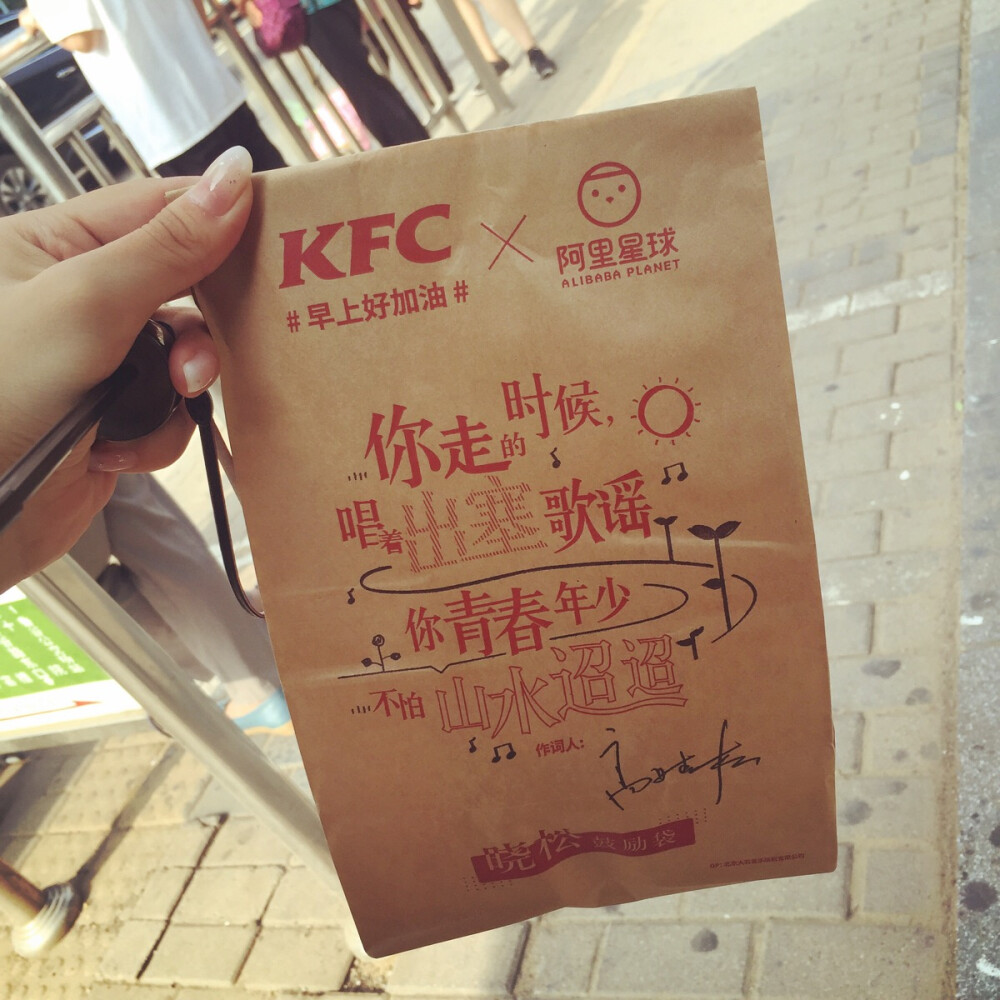 KFC × 阿里星球
ALIBABA PLANET
#早上好加油#
你走的时候,
唱着出塞歌谣
你青春年少
不怕山水迢迢
作词人:
高晓松
晓松 鼓励袋